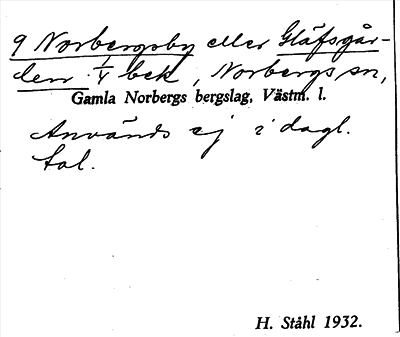 9 Norbergsby eller Gläfsgår-
den. 1/4 bek, Norbergs sn,
Gamla Norbergs bergslag, Västm. l.
Användes ej i dagl.
tal.
H. Ståhl 1932.